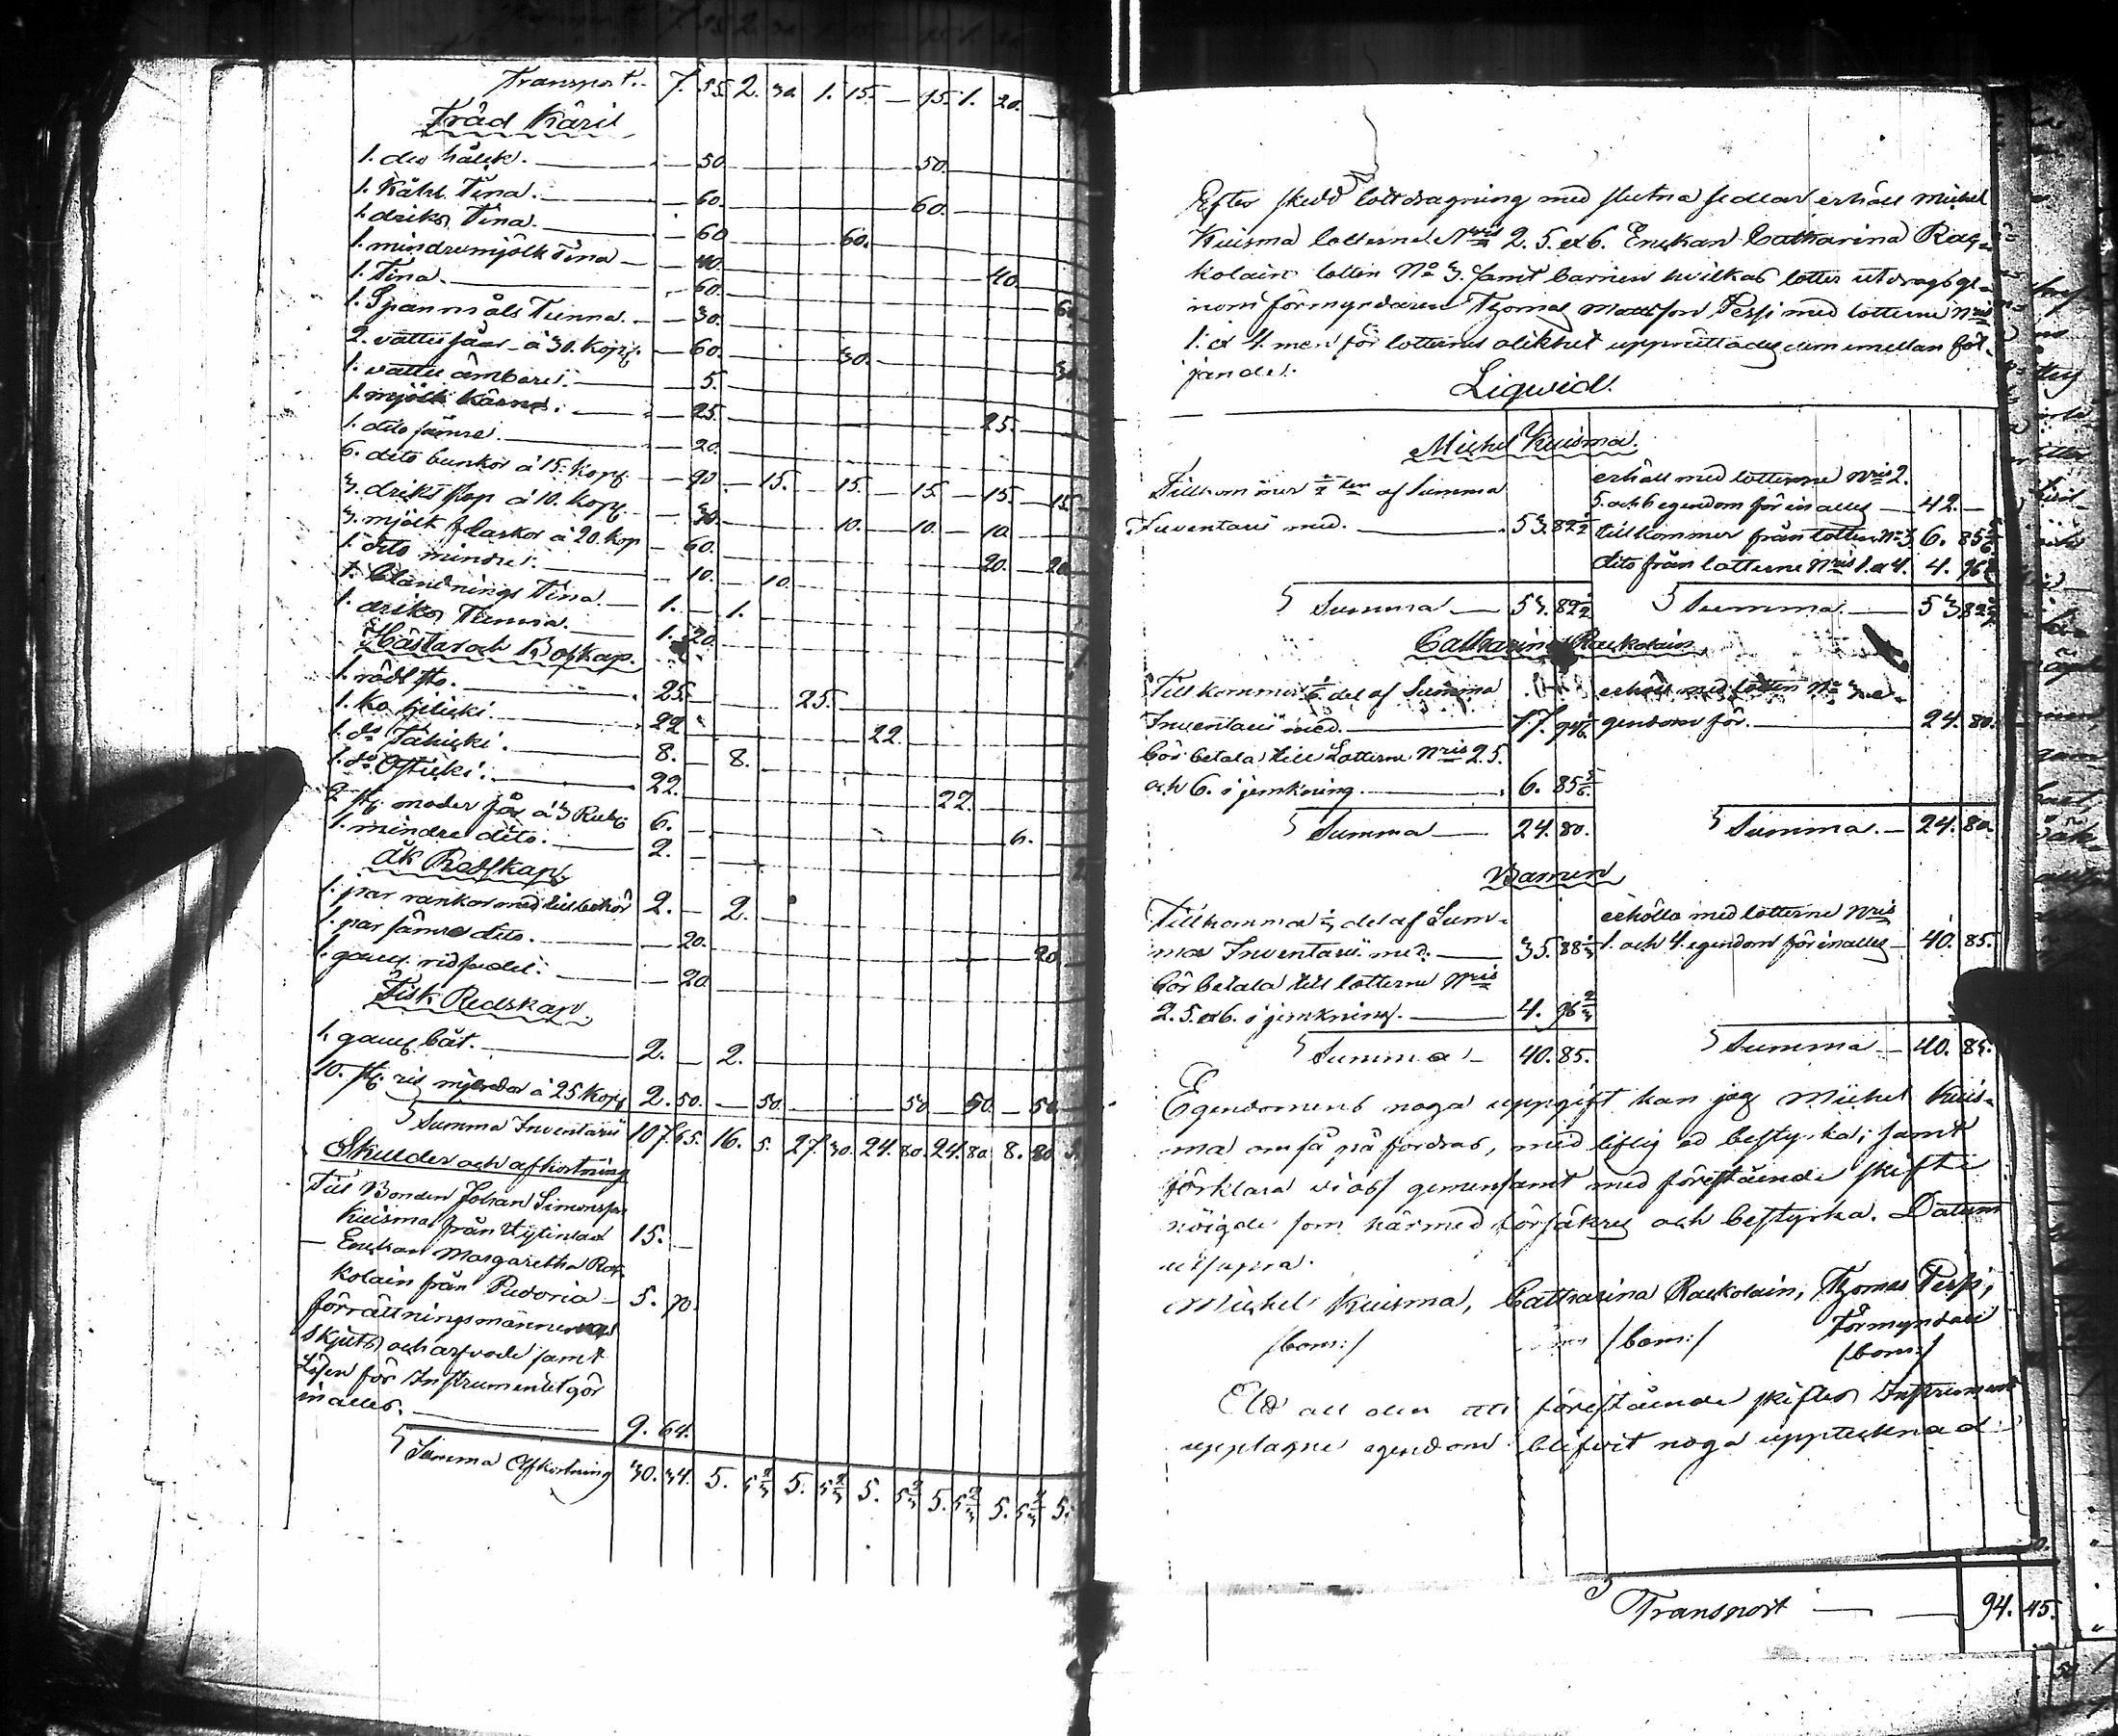 Transport. 7. 55. 2. 30. 1. 15. — 75. 1. 20.
Träd Käril
1. — 50. 50.
1. Kåhl Tina. — 60. 60.
1. driks Tina. — 60 60.
1. mindre mjölk Tina — 40. 40.
1. Tina. — 60. 60
1. Spanmåls Tunna. — 30.
2. vattu såar à 30. Kop. — 60. 30. 30
1. vattu ämbare. — 5.
1. mjölk Kärna. — 25. 25.
1. dito sämre. — 20.
6. dito bunkor à 15. Kop. — 90 — 15. 15. — 15. — 15. — 15.
3. driks stop à 10. Kop. — 30. 10. 10. 10.
3. mjölk flaskor à 20. Kop — 60. 20. 20
1. dito mindre. — 10. — 10.
1. blandnings Tina. — 1. — 1.
1. driks Tunna. — 1. 20.
Hästar och Boskap.
1. röd — 25. — 25.
1. Ko — 22 22.
1. do Tähicki. — 8. — 8.
1. do — 22. 22.
2 st. moder får à 3 Rub. 6. — 6.
1. mindre dito. — 2. —
Åk Redskap
1. par rankor med tillbehör 2. — 2. —
1. par sämre dito. — 20. 20
1. gam. ridsadel. — 20.
Fisk Redskap.
1. gam. båt. — 2. — 2.
10. st. ris mjerdor à 25 Kop. 2. 50. — 50. 50 — 50. — 50
Summa Inventarii 107. 65. 16. 5. 27. 30. 24. 80. 24. 80. 8. 80
Skulder och afkortning
Till Bonden Johan Simonsson
Kuisma från 15. —
— Enckan Margaretha Rau-
kolain från Pudoria — 5. 70.
förrättningsmännernas
skjuts och arfvode samt
Lösen för Instrumentet gör
inalles. — 9. 64.
Summa Afkortning 30. 34. 5. 5 2/3 5. 5 2/3 5. 5 2/3 5. 5 2/3 5. 5 2/3 5.
Efter skedd lottdragning med slutna sedlar erhåll Michel
Kuisma lotterne Nris 2. 5. et 6. Enckan Catharina Rau-
kolain lotten No 3. samt barnen hvilkas lotter utdrags ge-
nom förmyndaren Thomas Mattsson Pessi med lotterne Nris
1. et 4. men för lotternes olikhet upprättades dem emellan föl-
jande.
Liqwid.
Michel Kuisma.
Tillkommer 1/2 den af Summa
Inventarii med. — 53. 82 1/2
erhåll med lotterne Nris 2.
5. och 6 egendom för inalles — 42. —
tillkommer från lotten No 3 6. 85 5/6
dito från lotterne Nris 1. et 4. 4. 96 2/3
Summa — 53. 82 1/2 Summa. — 53 82 1/2
Catharina Raukolain
Tillkommer 1/6 del af Summa
Inventarii med. — 17. 94 1/6
erhåll med lotten No 3 e-
gendom för. — 24. 80.
bör betala till Lotterne Nris 2. 5.
och 6. i jemkning. — 6. 85 5/6
Summa — 24. 80. Summa. — 24. 80.
Barnen
Tillkomma 1/3 del af Sum-
ma Inventarii med. — 35. 88 1/3
erhålla med lotterne Nris
1. och 4. egendom för inalles — 40. 85.
bör betala till lotterne Nris
2. 5. et 6. i jemkning. — 4. 96 2/3
Summa — 40. 85. Summa — 40. 85.
Egendomens noga uppgift kan jag Michel Kuis-
ma om så påfordras, med liflig ed bestyrka; samt
förklara vi oss gemensamt med förestående skifte
nöigde som härmed försäkras och bestyrka. Datum
ut supra.
Michel Kuisma, Catharina Raukolain, Thomas Pessi,
förmyndare
/bom:/ /bom:/ /bom:/
förestående skiftes Instrument
upptagne egendom blifvit noga upptecknad
Transport — — 94. 45.